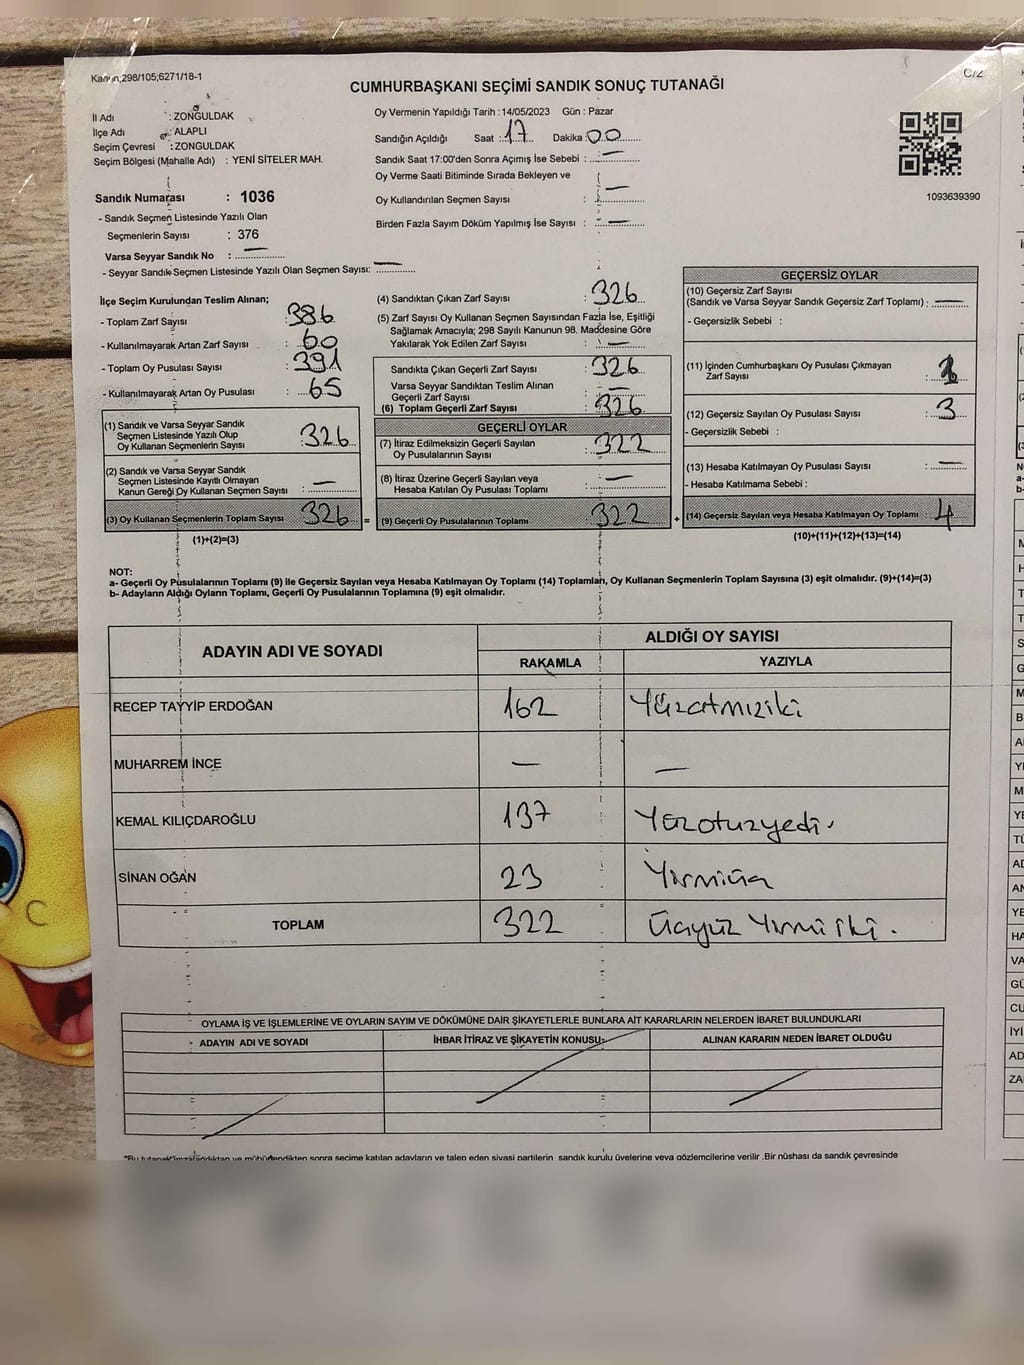 Kanun;298/105;6271/18-1
C/2
CUMHURBAŞKANI SEÇİMİ SANDIK SONUÇ TUTANAĞI
İl Adı : ZONGULDAK
İlçe Adı : ALAPLI
Seçim Çevresi : ZONGULDAK
Seçim Bölgesi (Mahalle Adı) : YENİ SİTELER MAH.
Sandık Numarası : 1036
- Sandık Seçmen Listesinde Yazılı Olan
Seçmenlerin Sayısı : 376
Varsa Seyyar Sandık No : —
- Seyyar Sandık Seçmen Listesinde Yazılı Olan Seçmen Sayısı: —
Oy Vermenin Yapıldığı Tarih : 14/05/2023 Gün : Pazar
Sandığın Açıldığı Saat : 17 Dakika : 00
Sandık Saat 17:00'den Sonra Açımış İse Sebebi : —
Oy Verme Saati Bitiminde Sırada Bekleyen ve
Oy Kullandırılan Seçmen Sayısı : —
Birden Fazla Sayım Döküm Yapılmış İse Sayısı : —
1093639390
İlçe Seçim Kurulundan Teslim Alınan;
- Toplam Zarf Sayısı : 386
- Kullanılmayarak Artan Zarf Sayısı : 60
- Toplam Oy Pusulası Sayısı : 391
- Kullanılmayarak Artan Oy Pusulası : 65
(1) Sandık ve Varsa Seyyar Sandık
Seçmen Listesinde Yazılı Olup
Oy Kullanan Seçmenlerin Sayısı : 326
(2) Sandık ve Varsa Seyyar Sandık
Seçmen Listesinde Kayıtlı Olmayan
Kanun Gereği Oy Kullanan Seçmen Sayısı : —
(3) Oy Kullanan Seçmenlerin Toplam Sayısı : 326 =
(1)+(2)=(3)
(4) Sandıktan Çıkan Zarf Sayısı : 326
(5) Zarf Sayısı Oy Kullanan Seçmen Sayısından Fazla İse, Eşitliği
Sağlamak Amacıyla; 298 Sayılı Kanunun 98. Maddesine Göre
Yakılarak Yok Edilen Zarf Sayısı : —
Sandıkta Çıkan Geçerli Zarf Sayısı : 326
Varsa Seyyar Sandıktan Teslim Alınan
Geçerli Zarf Sayısı : —
(6) Toplam Geçerli Zarf Sayısı : 326
GEÇERLİ OYLAR
(7) İtiraz Edilmeksizin Geçerli Sayılan
Oy Pusulasının Sayısı : 322
(8) İtiraz Üzerine Geçerli Sayılan veya
Hesaba Katılan Oy Pusulası Toplamı : —
(9) Geçerli Oy Pusulalarının Toplamı : 322 +
GEÇERSİZ OYLAR
(10) Geçersiz Zarf Sayısı
(Sandık ve Varsa Seyyar Sandık Geçersiz Zarf Toplamı) : —
- Geçersizlik Sebebi :
(11) İçinden Cumhurbaşkanı Oy Pusulası Çıkmayan
Zarf Sayısı : 1
(12) Geçersiz Sayılan Oy Pusulası Sayısı : 3
- Geçersizlik Sebebi :
(13) Hesaba Katılmayan Oy Pusulası Sayısı : —
- Hesaba Katılmama Sebebi :
(14) Geçersiz Sayılan veya Hesaba Katılmayan Oy Toplamı : 4
(10)+(11)+(12)+(13)=(14)
NOT:
a- Geçerli Oy Pusulalarının Toplamı (9) ile Geçersiz Sayılan veya Hesaba Katılmayan Oy Toplamı (14) Toplamları, Oy Kullanan Seçmenlerin Toplam Sayısına (3) eşit olmalıdır. (9)+(14)=(3)
b- Adayların Aldığı Oyların Toplamı, Geçerli Oy Pusulalarının Toplamına (9) eşit olmalıdır.
ADAYIN ADI VE SOYADI ALDIĞI OY SAYISI
RAKAMLA YAZIYLA
RECEP TAYYİP ERDOĞAN 162 Yüzatmıziki
MUHARREM İNCE — —
KEMAL KILIÇDAROĞLU 137 Yüzotuzyedi.
SİNAN OĞAN 23 Yirmiüç
TOPLAM 322 Üçyüz Yirmi iki.
OYLAMA İŞ VE İŞLEMLERİNE VE OYLARIN SAYIM VE DÖKÜMÜNE DAİR ŞİKAYETLERLE BUNLARA AİT KARARLARIN NELERDEN İBARET BULUNDUKLARI
ADAYIN ADI VE SOYADI İHBAR İTİRAZ VE ŞİKAYETİN KONUSU ALINAN KARARIN NEDEN İBARET OLDUĞU
"Bu tutanak imzalandıktan ve mühürlendikten sonra seçime katılan adayların ve talep eden siyasi partilerin sandık kurulu üyelerine veya gözlemcilerine verilir .Bir nüshası da sandık çevresinde